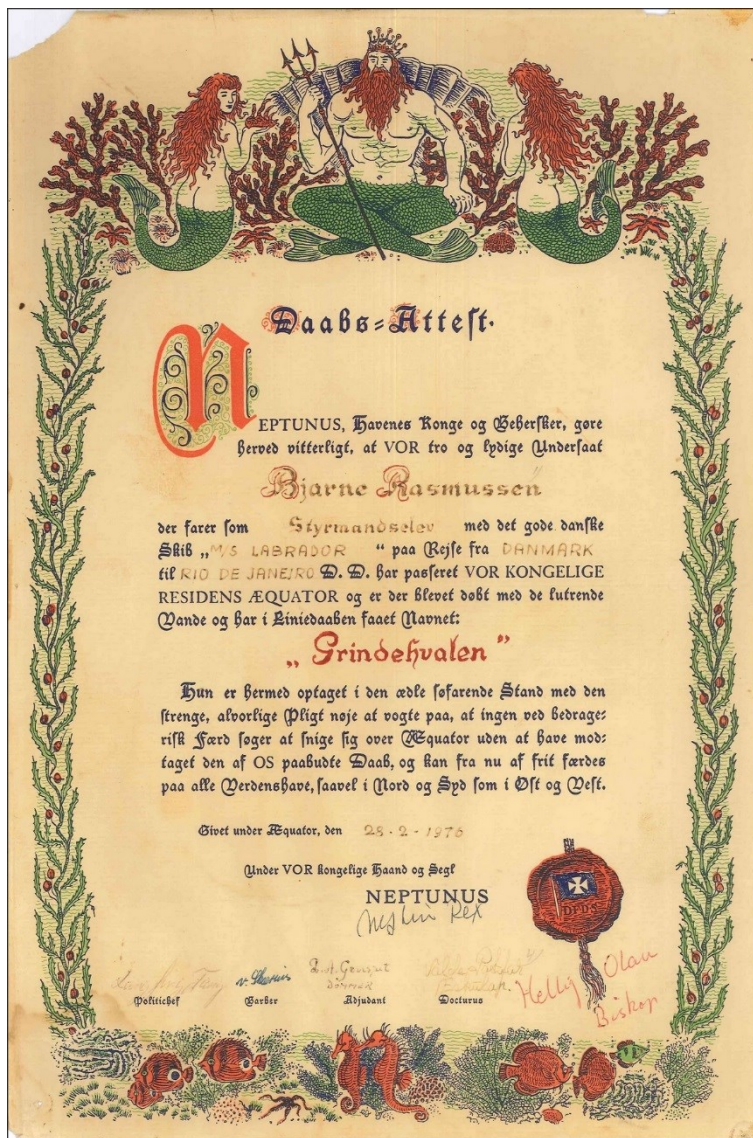 Daabs=Attest.
NEPTUNUS, Havenes Konge og Behersker, gøre
herved vitterligt, at VOR tro og lydige Undersaat
Bjarne Rasmussen
der farer som Styrmandselev med det gode danske
Skib „M/S LABRADOR“ paa Rejse fra DANMARK
til RIO DE JANEIRO D. D. har passeret VOR KONGELIGE
RESIDENS ÆQUATOR og er der blevet døbt med de lutrende
Vande og har i Liniedaaben faaet Navnet:
„Grindehvalen”
Hun er hermed optaget i den ædle søfarende Stand med den
strenge, alvorlige Pligt nøje at vogte paa, at ingen ved bedrage=
risk Færd søger at snige sig over Æquator uden at have mod=
taget den af OS paabudte Daab, og kan fra nu af frit færdes
paa alle Verdenshave, saavel i Nord og Syd som i Øst og Vest.
Givet under Æquator, den 28-2-1976
Under VOR kongelige Haand og Segl
NEPTUNUS
Rex
DFDS
Politichef Barber Adjudant Docturus
Hellig Olav
Biskop